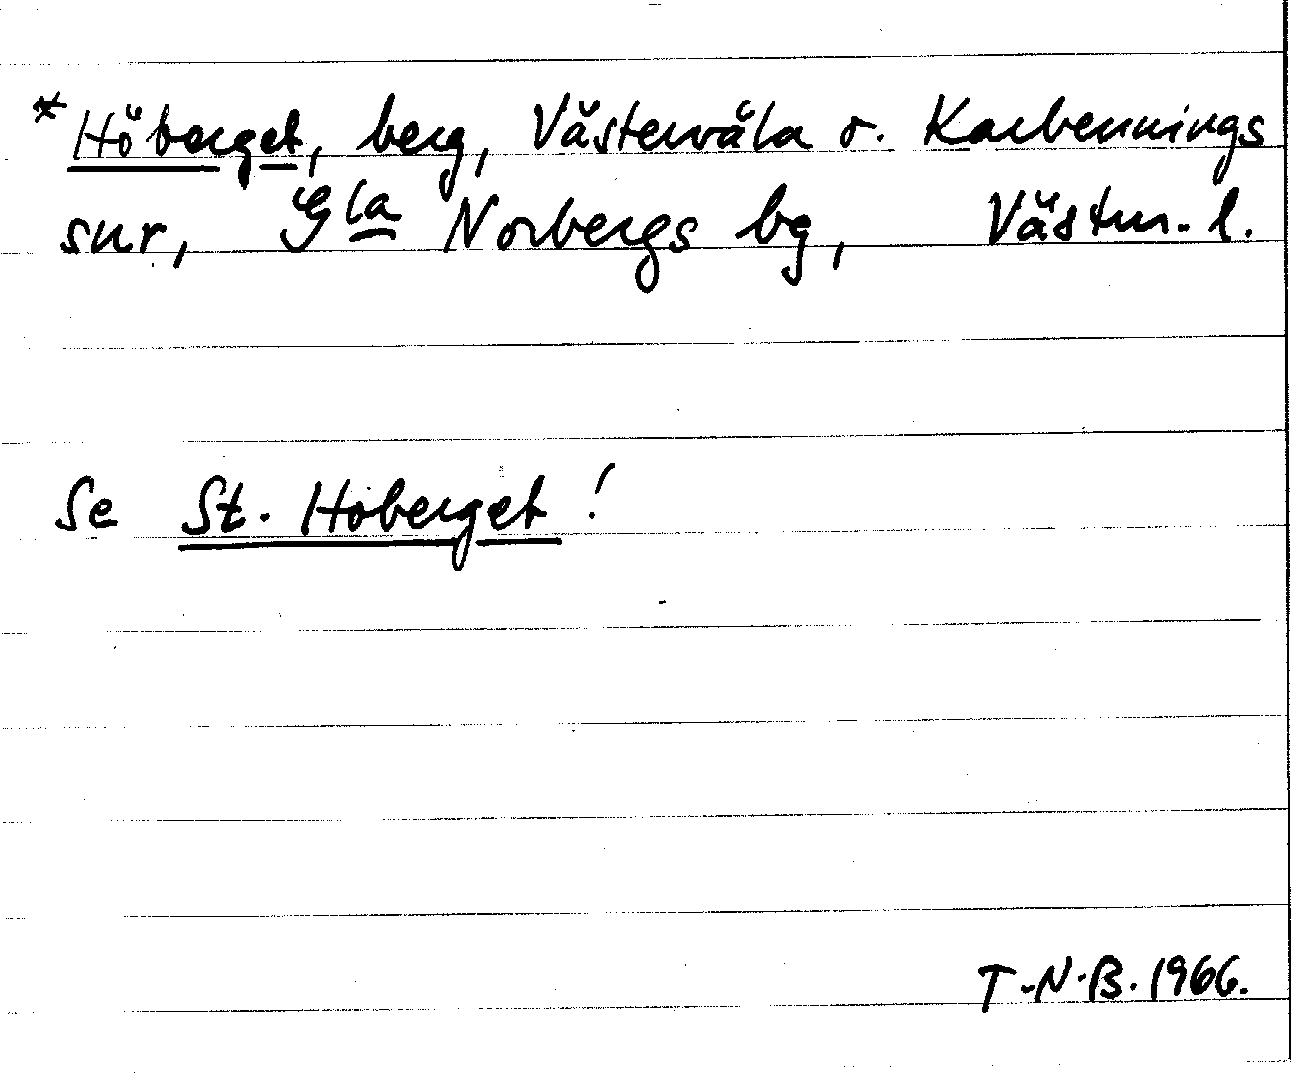 *Höberget, berg, Västervåla o. Karbennings
snr, Gla Norbergs bg, Västm. l.
Se St. Hoberget!
T.N.B. 1966.